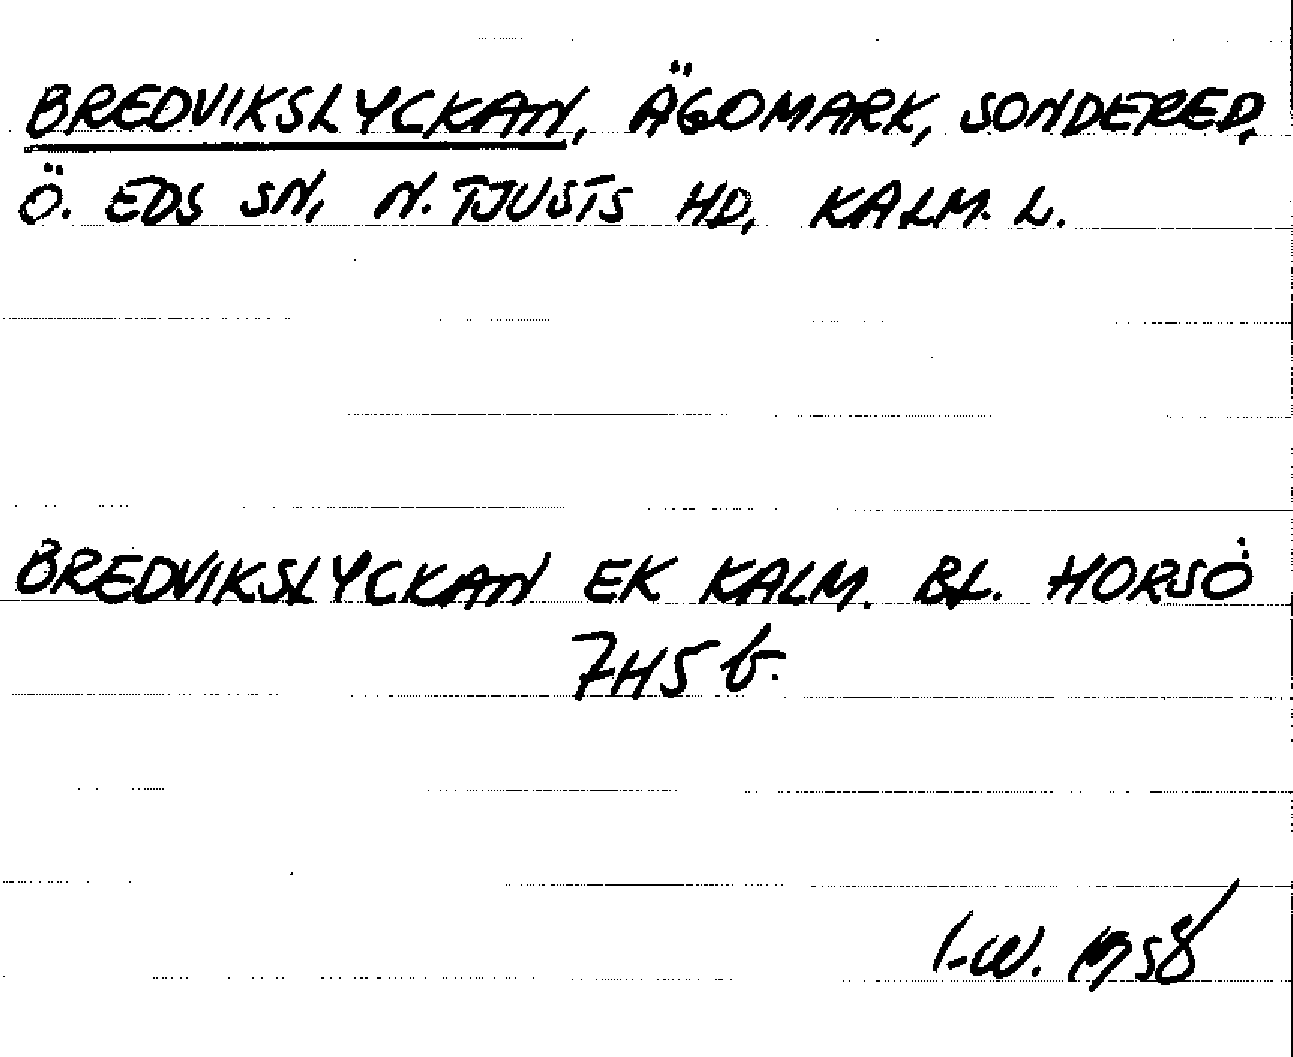 BREDVIKSLYCKAN, ÄGOMARK, SONDERED,
Ö. EDS SN, N. TJUSTS HD, KALM. L.
BREDVIKSLYCKAN EK KALM. BL. HORSÖ
7H5 b.
I-W. 1958